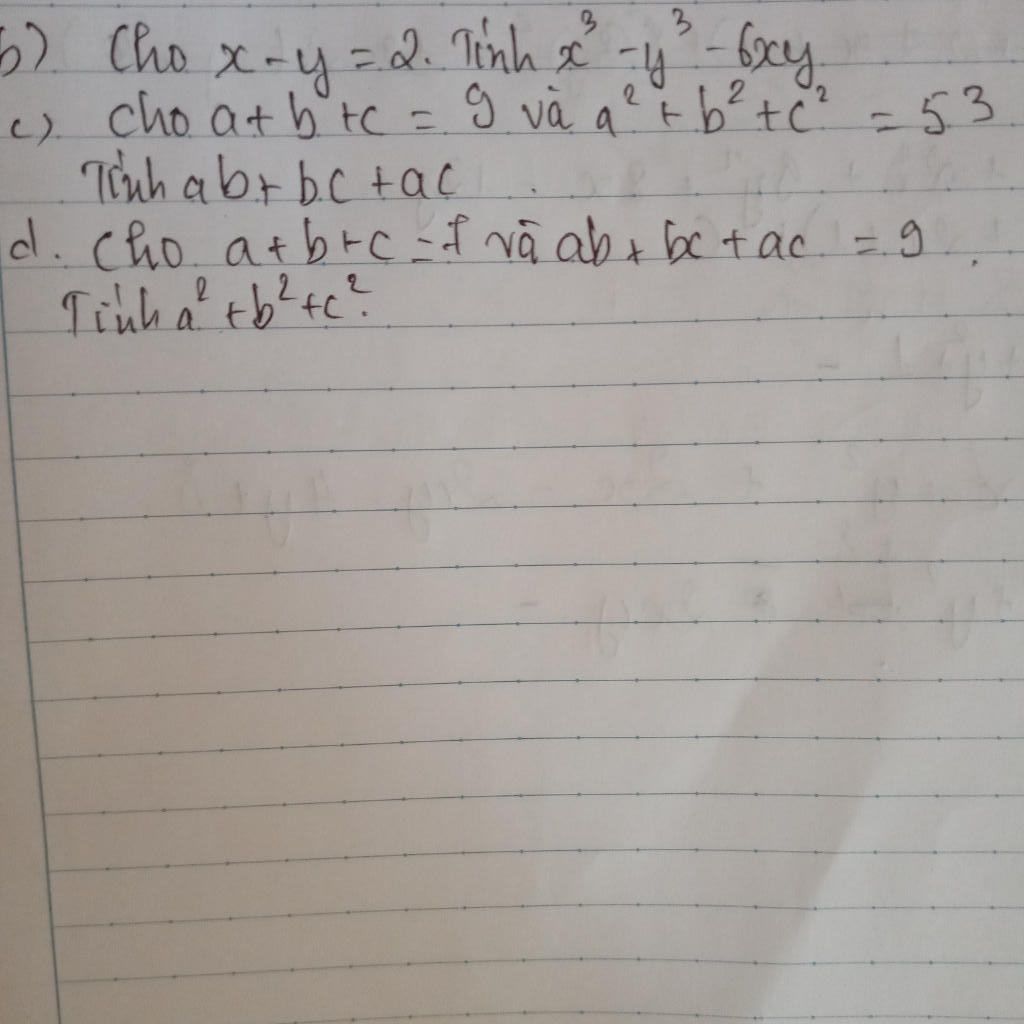 b) Cho x - y = 2. Tính x³ - y³ - 6xy
c) cho a + b + c = 9 và a² + b² + c² = 53
Tính ab + bc + ac
d. Cho a + b + c = 7 và ab + bc + ac = 9.
Tính a² + b² + c².